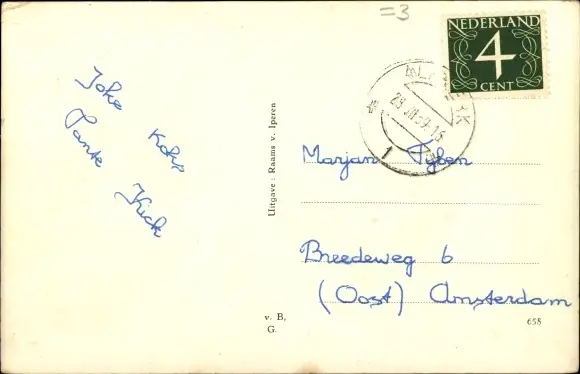 =3
NEDERLAND
4
CENT
Joke Kohr
Tante Kick
Uitgave: Raams v. Iperen
Marjan Tyben
Breedeweg 6
(Oost) Amsterdam
v. B,
G.
658